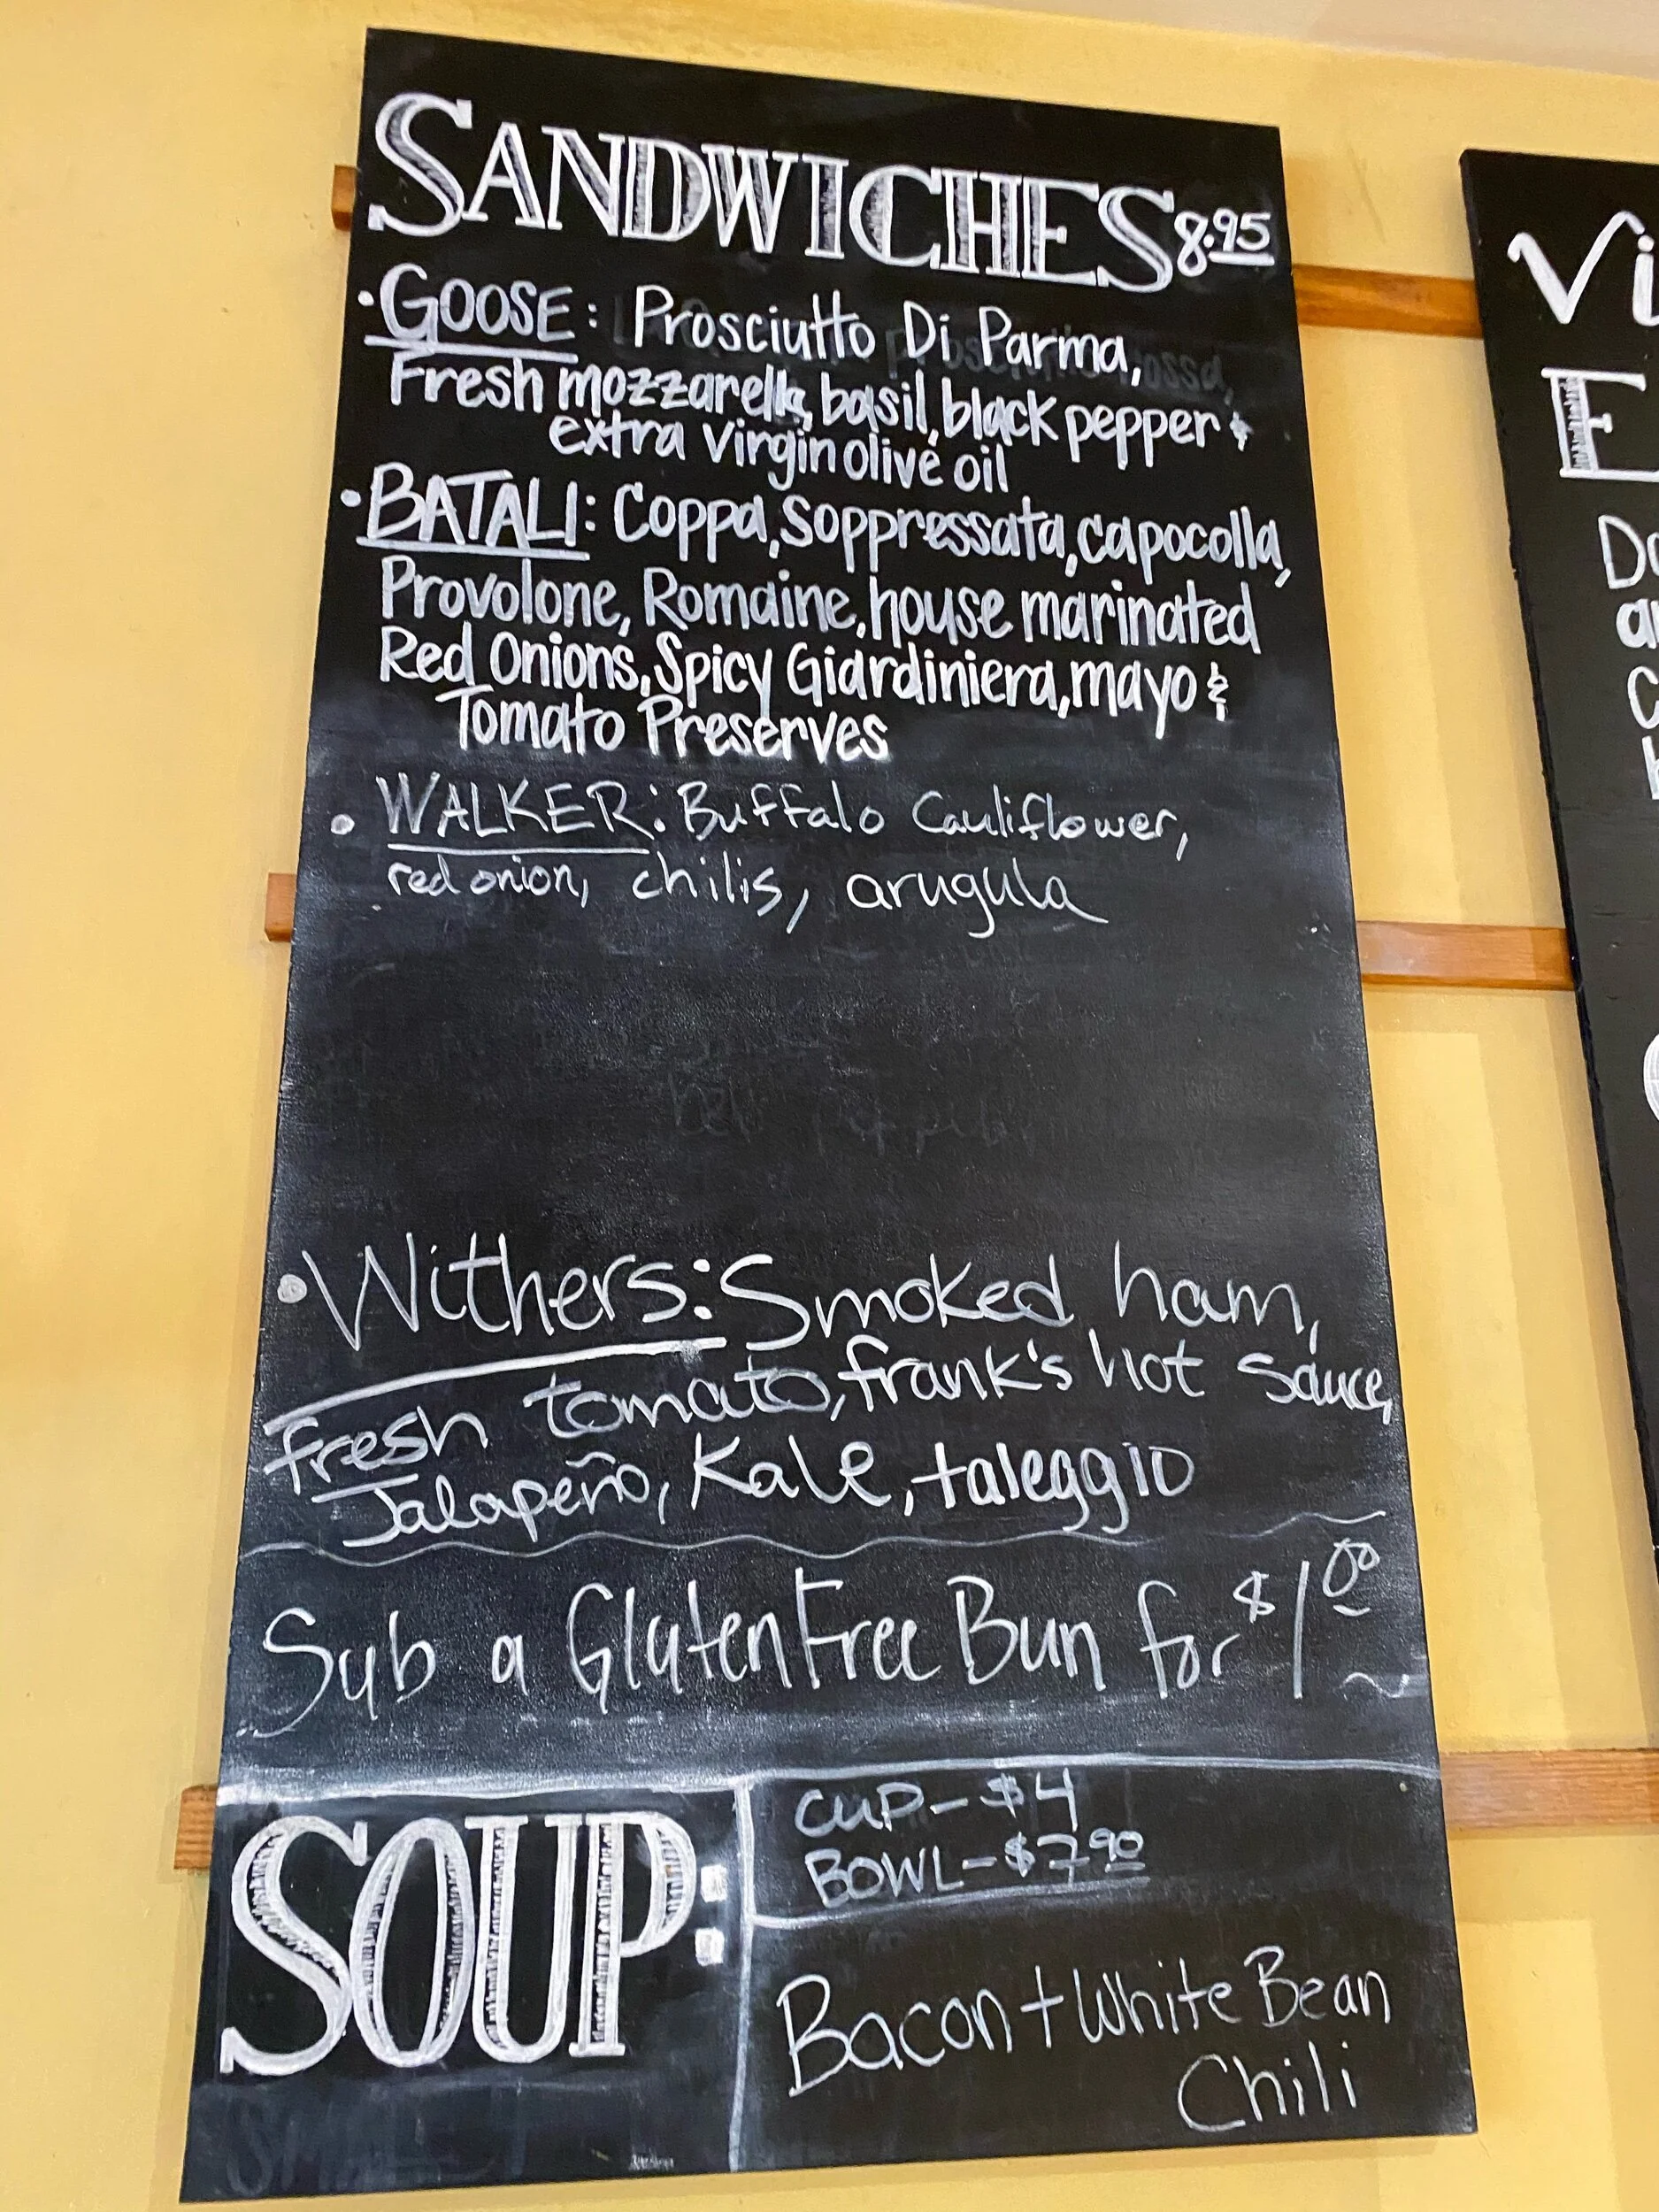 SANDWICHES 8.95
• GOOSE: Prosciutto Di Parma,
Fresh mozzarella, basil, black pepper &
extra virgin olive oil
• BATALI: Coppa, Soppressata, capocolla,
Provolone, Romaine, house marinated
Red Onions, Spicy Giardiniera, mayo &
Tomato Preserves
• WALKER: Buffalo Cauliflower,
red onion, chilis, arugula
• Withers: Smoked ham,
fresh tomato, frank's hot sauce,
Jalapeño, Kale, taleggio
Sub a Gluten Free Bun for $1.00
SOUP:
CUP - $4
BOWL - $7.90
Bacon + White Bean
Chili
Vi
E